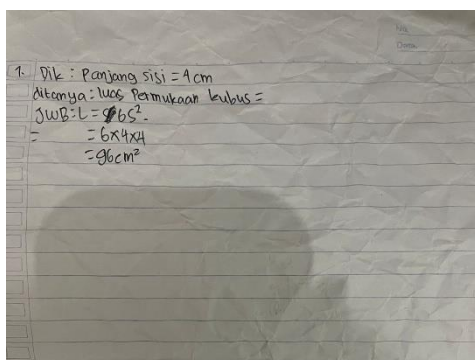 No.
Date.
1. Dik : Panjang sisi = 4 cm
ditanya : luas Permukaan kubus =
JWB : L = 6S².
= = 6x4x4
= 96 cm²